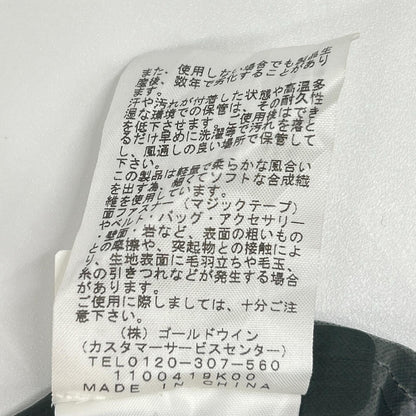 また、使用しない場合でも製品生
産後、数年で劣化することがあり
ます。
汗や汚れが付着した状態や高温多
湿な環境での保管は、その耐久性
を低下させます。使用後はでき
るだけ早めに洗濯等で汚れを落と
し、風通しの良い場所で保管して
下さい。
この製品は軽量で柔らかな風合い
を出す為、細くてソフトな合成繊
維を使用しています。
面ファスナー(マジックテープ)
やベルト・バッグ・アクセサリー
・壁面・岩など、表面の粗いもの
との摩擦や、突起物との接触によ
り、生地表面に毛羽立ちや毛玉、
糸の引きつれなどが発生する場合
があります。
ご使用に際しましては、十分ご注
意下さい。
(株)ゴールドウイン
(カスタマーサービスセンター)
TEL0120-307-560
1100419K00
MADE IN CHINA